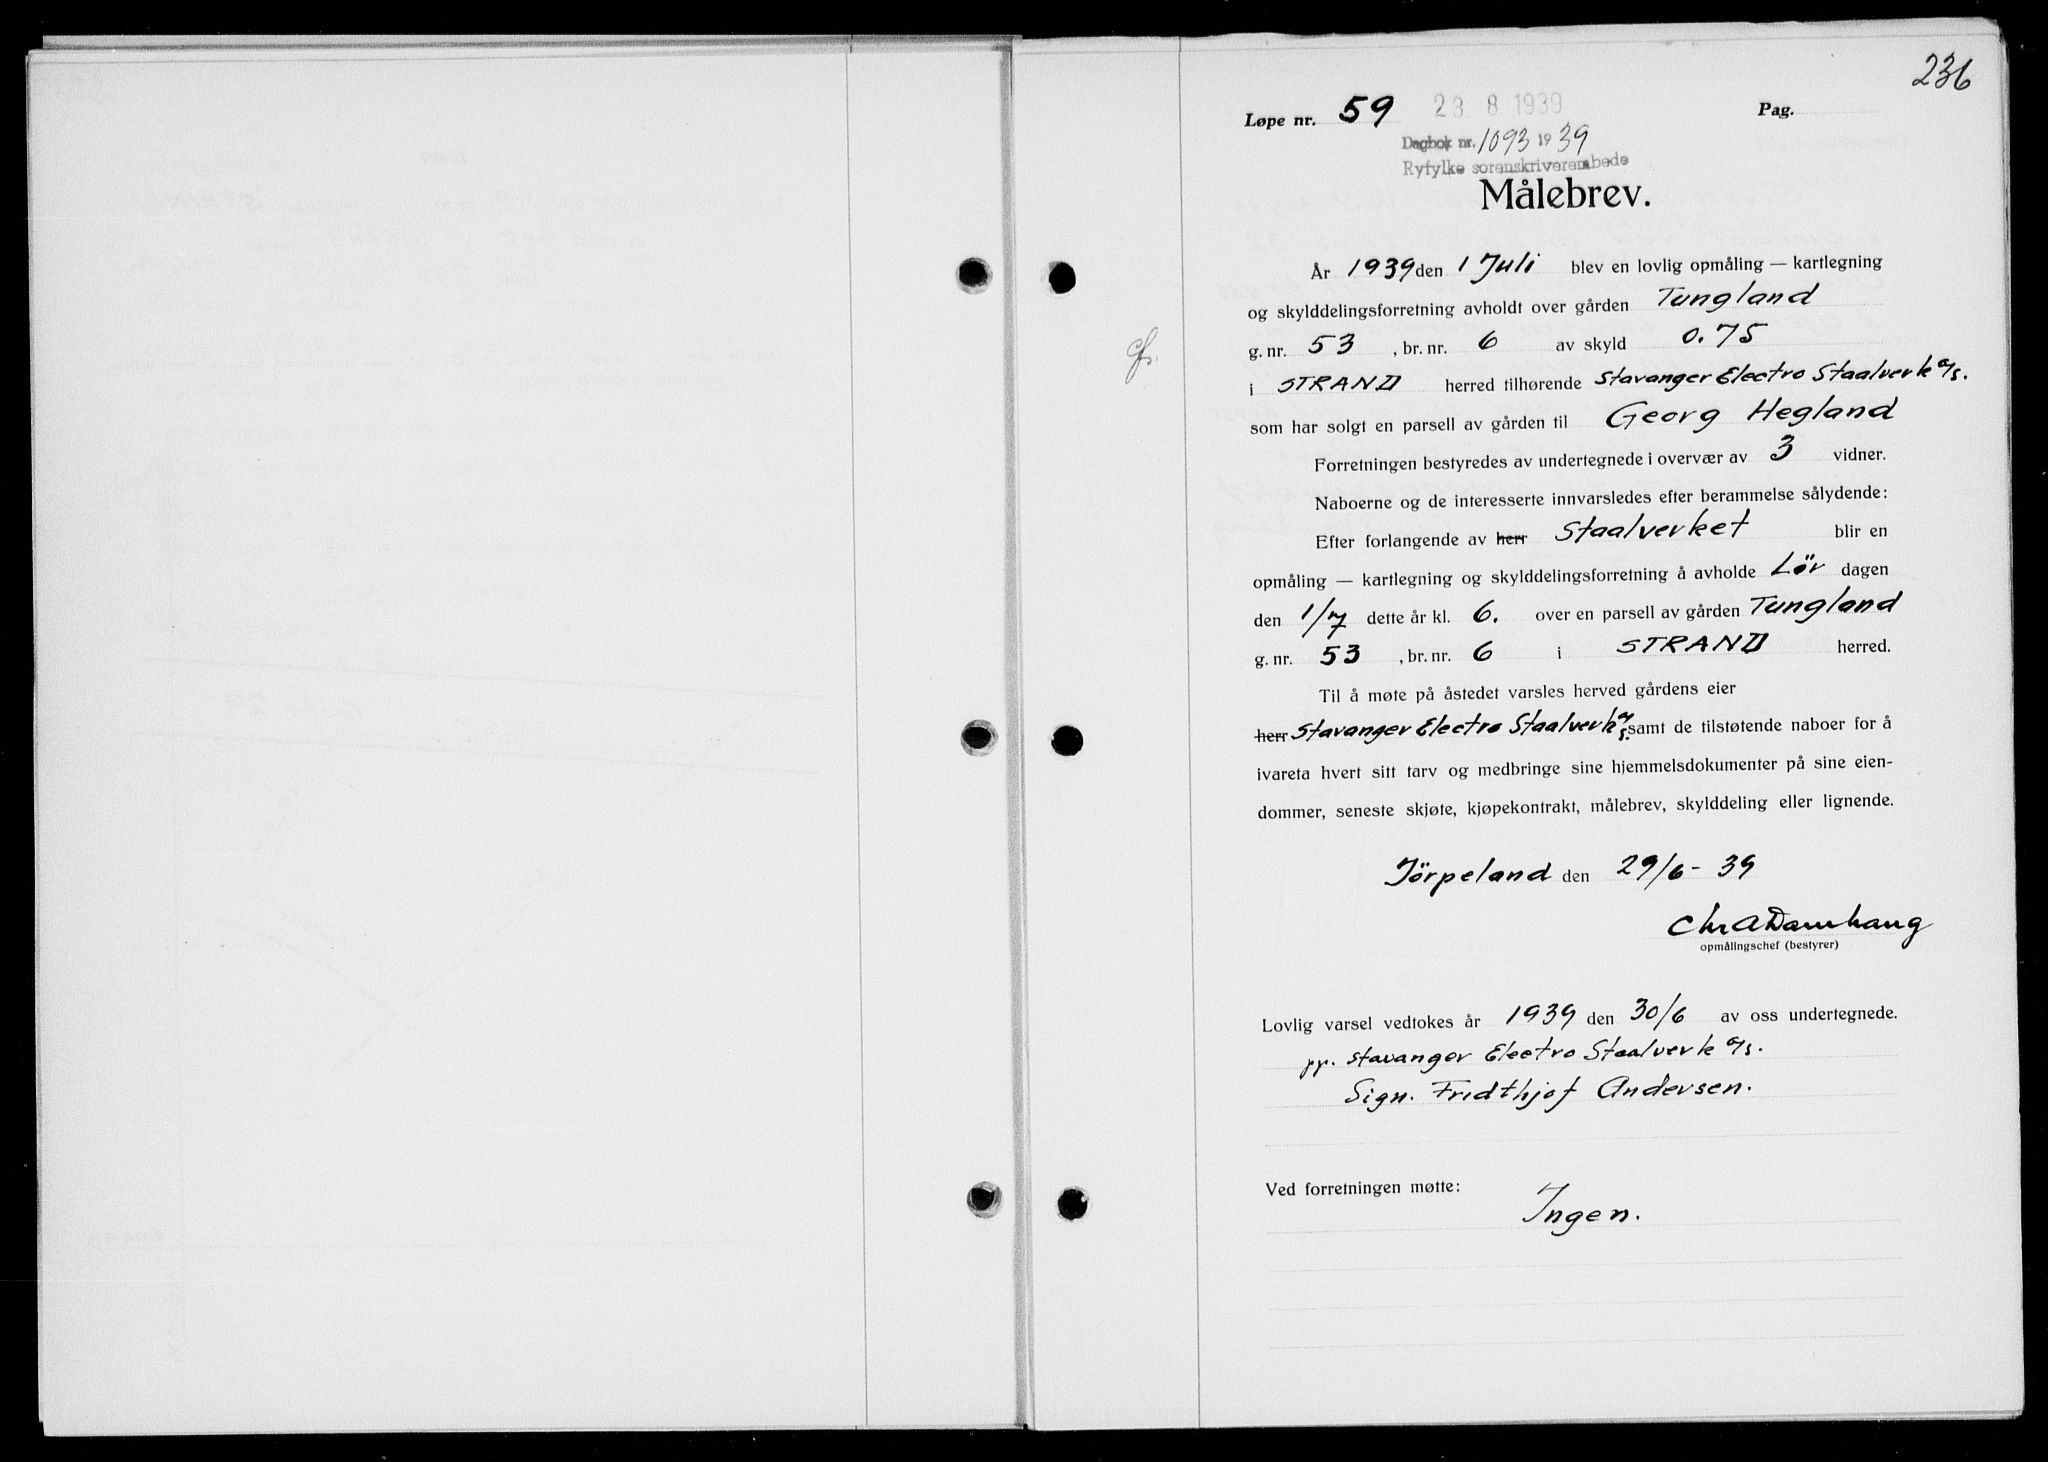 236
Løpe nr. 59 23 8 1939 Pag.
Dagbok nr. 1093 1939
Ryfylke sorenskriverembede
Målebrev.
År 1939 den 1 Juli blev en lovlig opmåling — kartlegning
og skylddelingsforretning avholdt over gården Tungland
g. nr. 53 , br. nr. 6 av skyld 0.75
i STRAND herred tilhørende Stavanger Electro Staalverk a/s.
som har solgt en parsell av gården til Georg Hegland
Forretningen bestyredes av undertegnede i overvær av 3 vidner.
Naboerne og de interesserte innvarsledes efter berammelse sålydende:
Efter forlangende av herr Staalverket blir en
opmåling — kartlegning og skylddelingsforretning å avholde Lör dagen
den 1/7 dette år kl. 6. over en parsell av gården Tungland
g. nr. 53 , br. nr. 6 i STRAND herred.
Til å møte på åstedet varsles herved gårdens eier
herr Stavanger Electro Staalverk a/s. samt de tilstøtende naboer for å
ivareta hvert sitt tarv og medbringe sine hjemmelsdokumenter på sine eien-
dommer, seneste skjøte, kjøpekontrakt, målebrev, skylddeling eller lignende.
Jörpeland den 29/6 - 39
Chr A Damhaug
opmålingschef (bestyrer)
Lovlig varsel vedtokes år 1939 den 30/6 av oss undertegnede.
pp. Stavanger Electro Staalverk a/s.
Sign. Fridthjof Andersen.
Ved forretningen møtte:
Ingen.